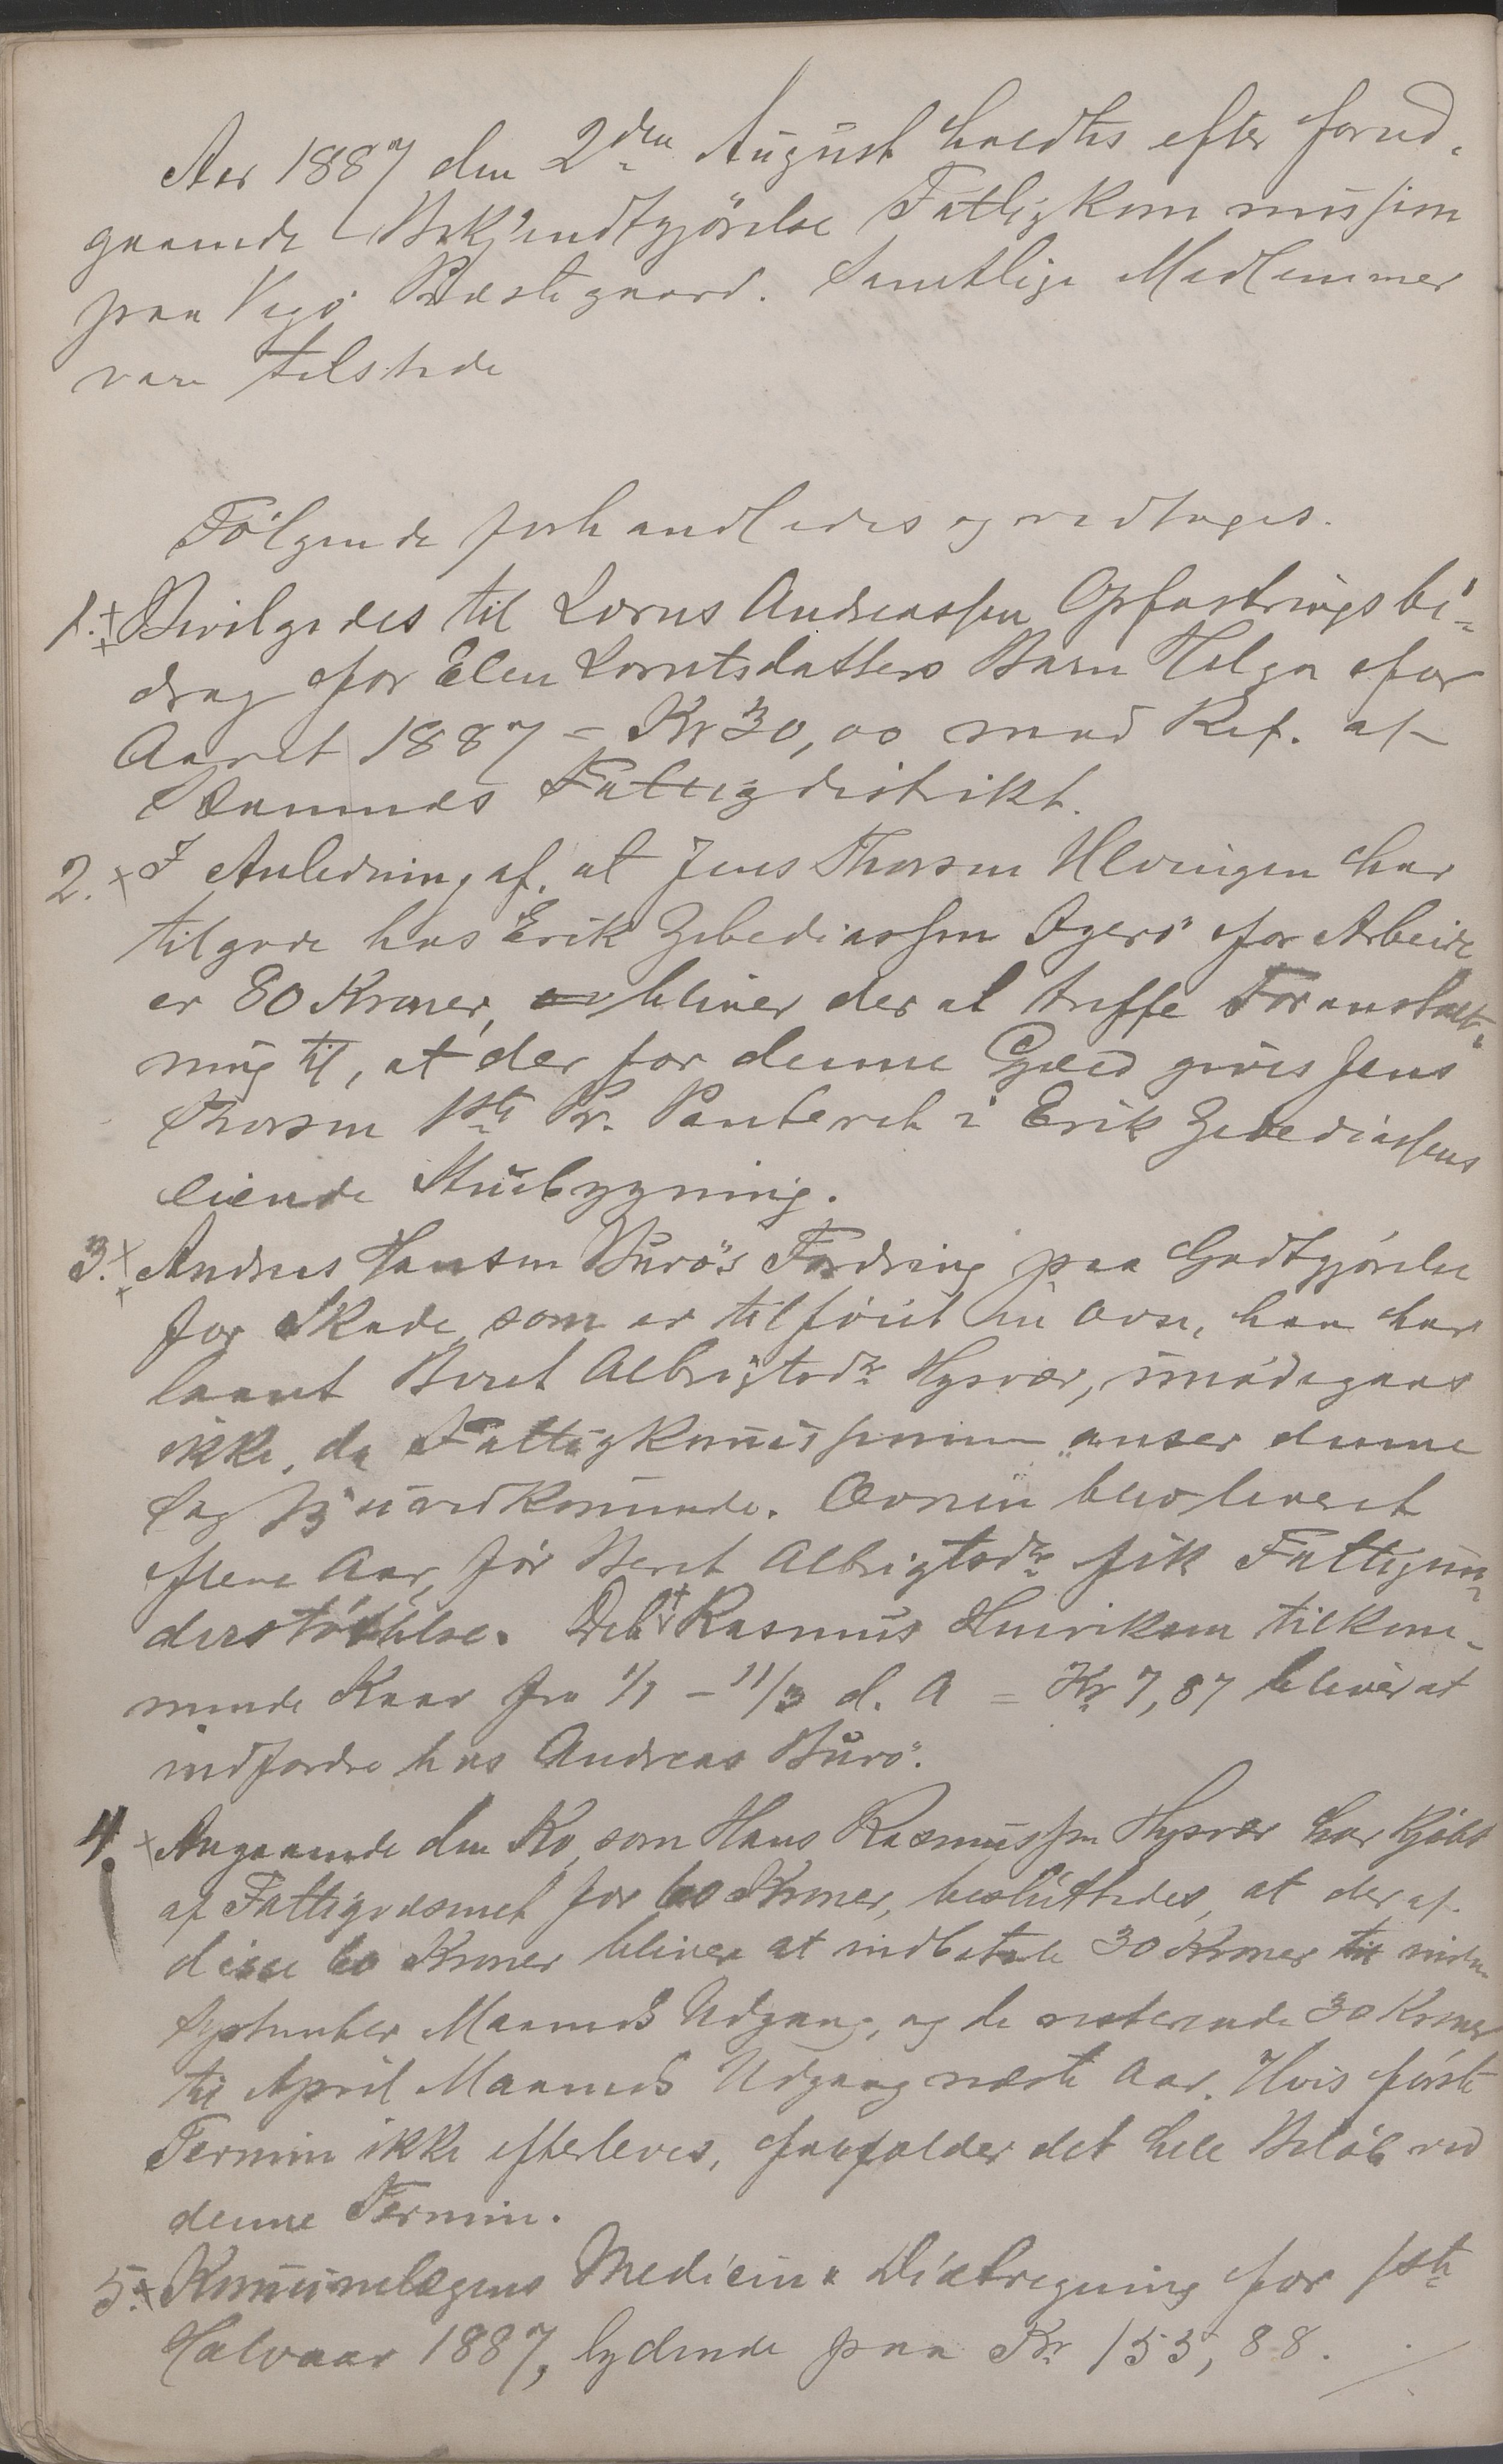 Aar 1887 den 2den August holdtes efter forud-
gaaende Bekjendtgjörelse Fattigkommission
paa Vegö Præstegaard. Samtlige Medlemmer
vare tilstede
Fölgende forhandledes og vedtoges.
1. Bevilgedes til Lorns Andreassen Opfostringsbi-
drag for Elen Lorntsdatters Barn Helga for
Aaret 1887 = Kr 30,00 med Ref. af
Fattigdistrikt.
2. I Anledning af, at Jens Thorsen Ulvingen har
tilgode hos Erik Zebediassen Ygerö for Arbeide
er 80 Kroner, bliver der at træffe Foranstalt-
ning til, at der for denne Gjæld gives Jens
Thorsen 1ste Pr. Panteret i Erik Zebediassens
eiende Stuebygning.
3. Andreas Hansen Burö's Fordring paa Godtgjörelse
for Skade, som er tilföiet en Ovn, han har
laant Beret Albrigtsdtr Hysvær, imödegaaes
ikke, da Fattigkommissionen anser denne
Sag sig uvedkommende. Ovnen blev leveret
flere Aar, för Beret Albrigtsdtr fik Fattigun-
derstöttelse. Det Rasmus Henriksen tilkom-
mende Kaar fra 1/1 - 11/3 d. A = Kr 7,87 bliver at
indfordre hos Andreas Burö.
4. Angaaende den Ko, som Hans Rasmussen Hysvær har kjöbt
af Fattigvæsenet for 60 Kroner, besluttedes, at der af
disse 60 Kroner bliver at indbetale 30 Kroner til inden
September Maaneds Udgang, og de resterende 30 Kroner
til April Maaneds Udgang næste Aar. Hvis förste
Termin ikke efterleves, forfalder det hele Belöb ved
denne Termin.
5. Kommunelægens Medicin & Diætregning for 1ste
Halvaar 1887, lydende paa Kr 153,88.